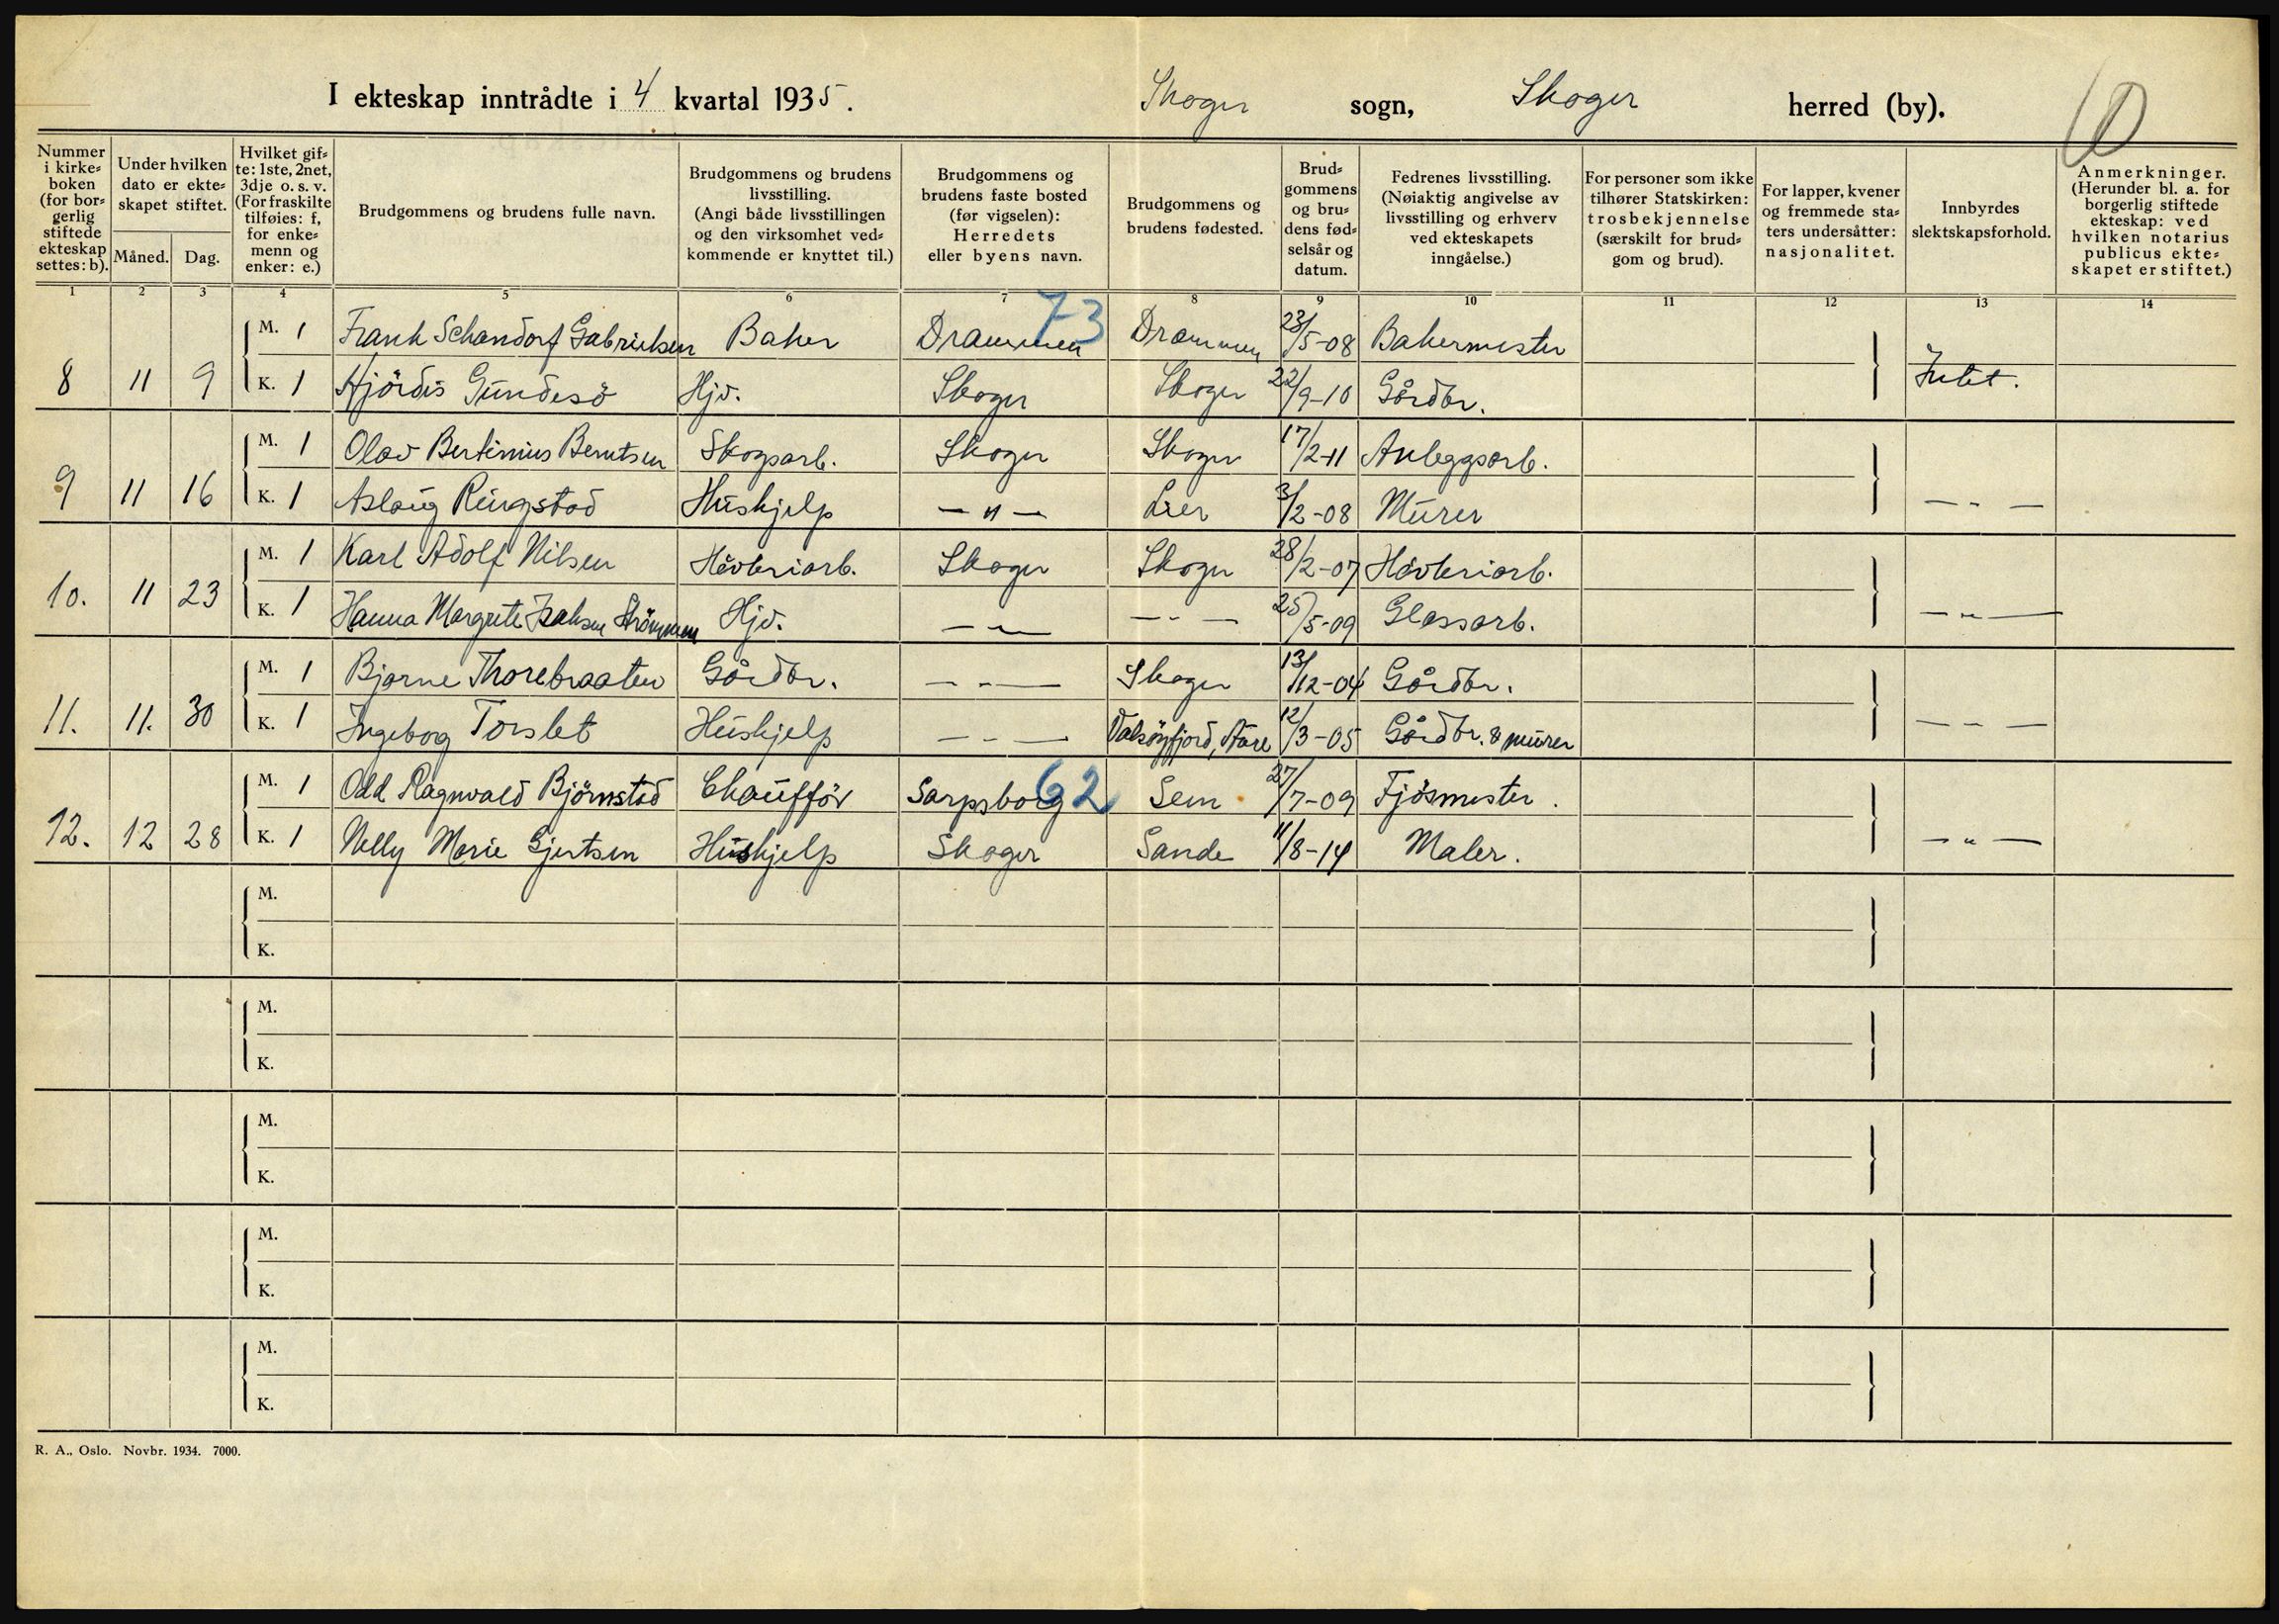 I ekteskap inntrådte i 4 kvartal 1935. Skoger sogn, Skoger herred (by).
Nummer i kirke= boken (for bor= gerlig stiftede ekteskap settes: b).
Under hvilken dato er ekte= skapet stiftet.
Måned. Dag.
Hvilket gif= te: 1ste, 2net, 3dje o. s. v. (For fraskilte tilføies: f, for enke= menn og enker: e.)
Brudgommens og brudens fulle navn.
Brudgommens og brudens livsstilling. (Angi både livsstillingen og den virksomhet ved= kommende er knyttet til.)
Brudgommens og brudens faste bosted (før vigselen): Herredets eller byens navn.
Brudgommens og brudens fødested.
Brud= gommens og bru= dens fød= selsår og datum.
Fedrenes livsstilling. (Nøiaktig angivelse av livsstilling og erhverv ved ekteskapets inngåelse.)
For personer som ikke tilhører Statskirken: trosbekjennelse (særskilt for brud= gom og brud).
For lapper, kvener og fremmede sta= ters undersåtter: nasjonalitet.
Innbyrdes slektskapsforhold.
Anmerkninger. (Herunder bl. a. for borgerlig stiftede ekteskap: ved hvilken notarius publicus ekte= skapet er stiftet.)
1 2 3 4 5 6 7 8 9 10 11 12 13 14
M. 1 Frank Schandorf Gabrielsen Baker Drammen 73 Drammen 23/5-08 Bakermester
8 11 9 K. 1 Hjördis Gundesö Hjv. Skoger Skoger 22/9-10 Gårdbr. Intet.
M. 1 Olav Bertinius Berntsen Skogsarb. Skoger Skoger 17/2-11 Anleggsarb.
9 11 16 K. 1 Aslaug Ringstad Hushjelp — " — Lier 3/2-08 Murer — " —
M. 1 Karl Adolf Nilsen Høvleriarb. Skoger Skoger 28/2-07 Høvleriarb.
10. 11 23 K. 1 Hanna Margrete Isaksen Strömmen Hjv. — " — — " — 25/5-09 Glassarb. — " —
M. 1 Bjarne Thorebraaten Gårdbr. — " — Skoger 13/12-04 Gårdbr.
11. 11. 30 K. 1 Ingeborg Torslet Hushjelp — " — Valsöyfjord, Aure 12/3-05 Gårdbr. & murer — " —
M. 1 Odd Ragnvald Björnstad Chauffør Sarpsborg 62 Sem 27/7-09 Fjösmester.
12. 12 28 K. 1 Nelly Marie Gjertsen Hushjelp Skoger Sande 11/8-14 Maler. — " —
M.
K.
M.
K.
M.
K.
M.
K.
M.
K.
R. A., Oslo. Novbr. 1934. 7000.